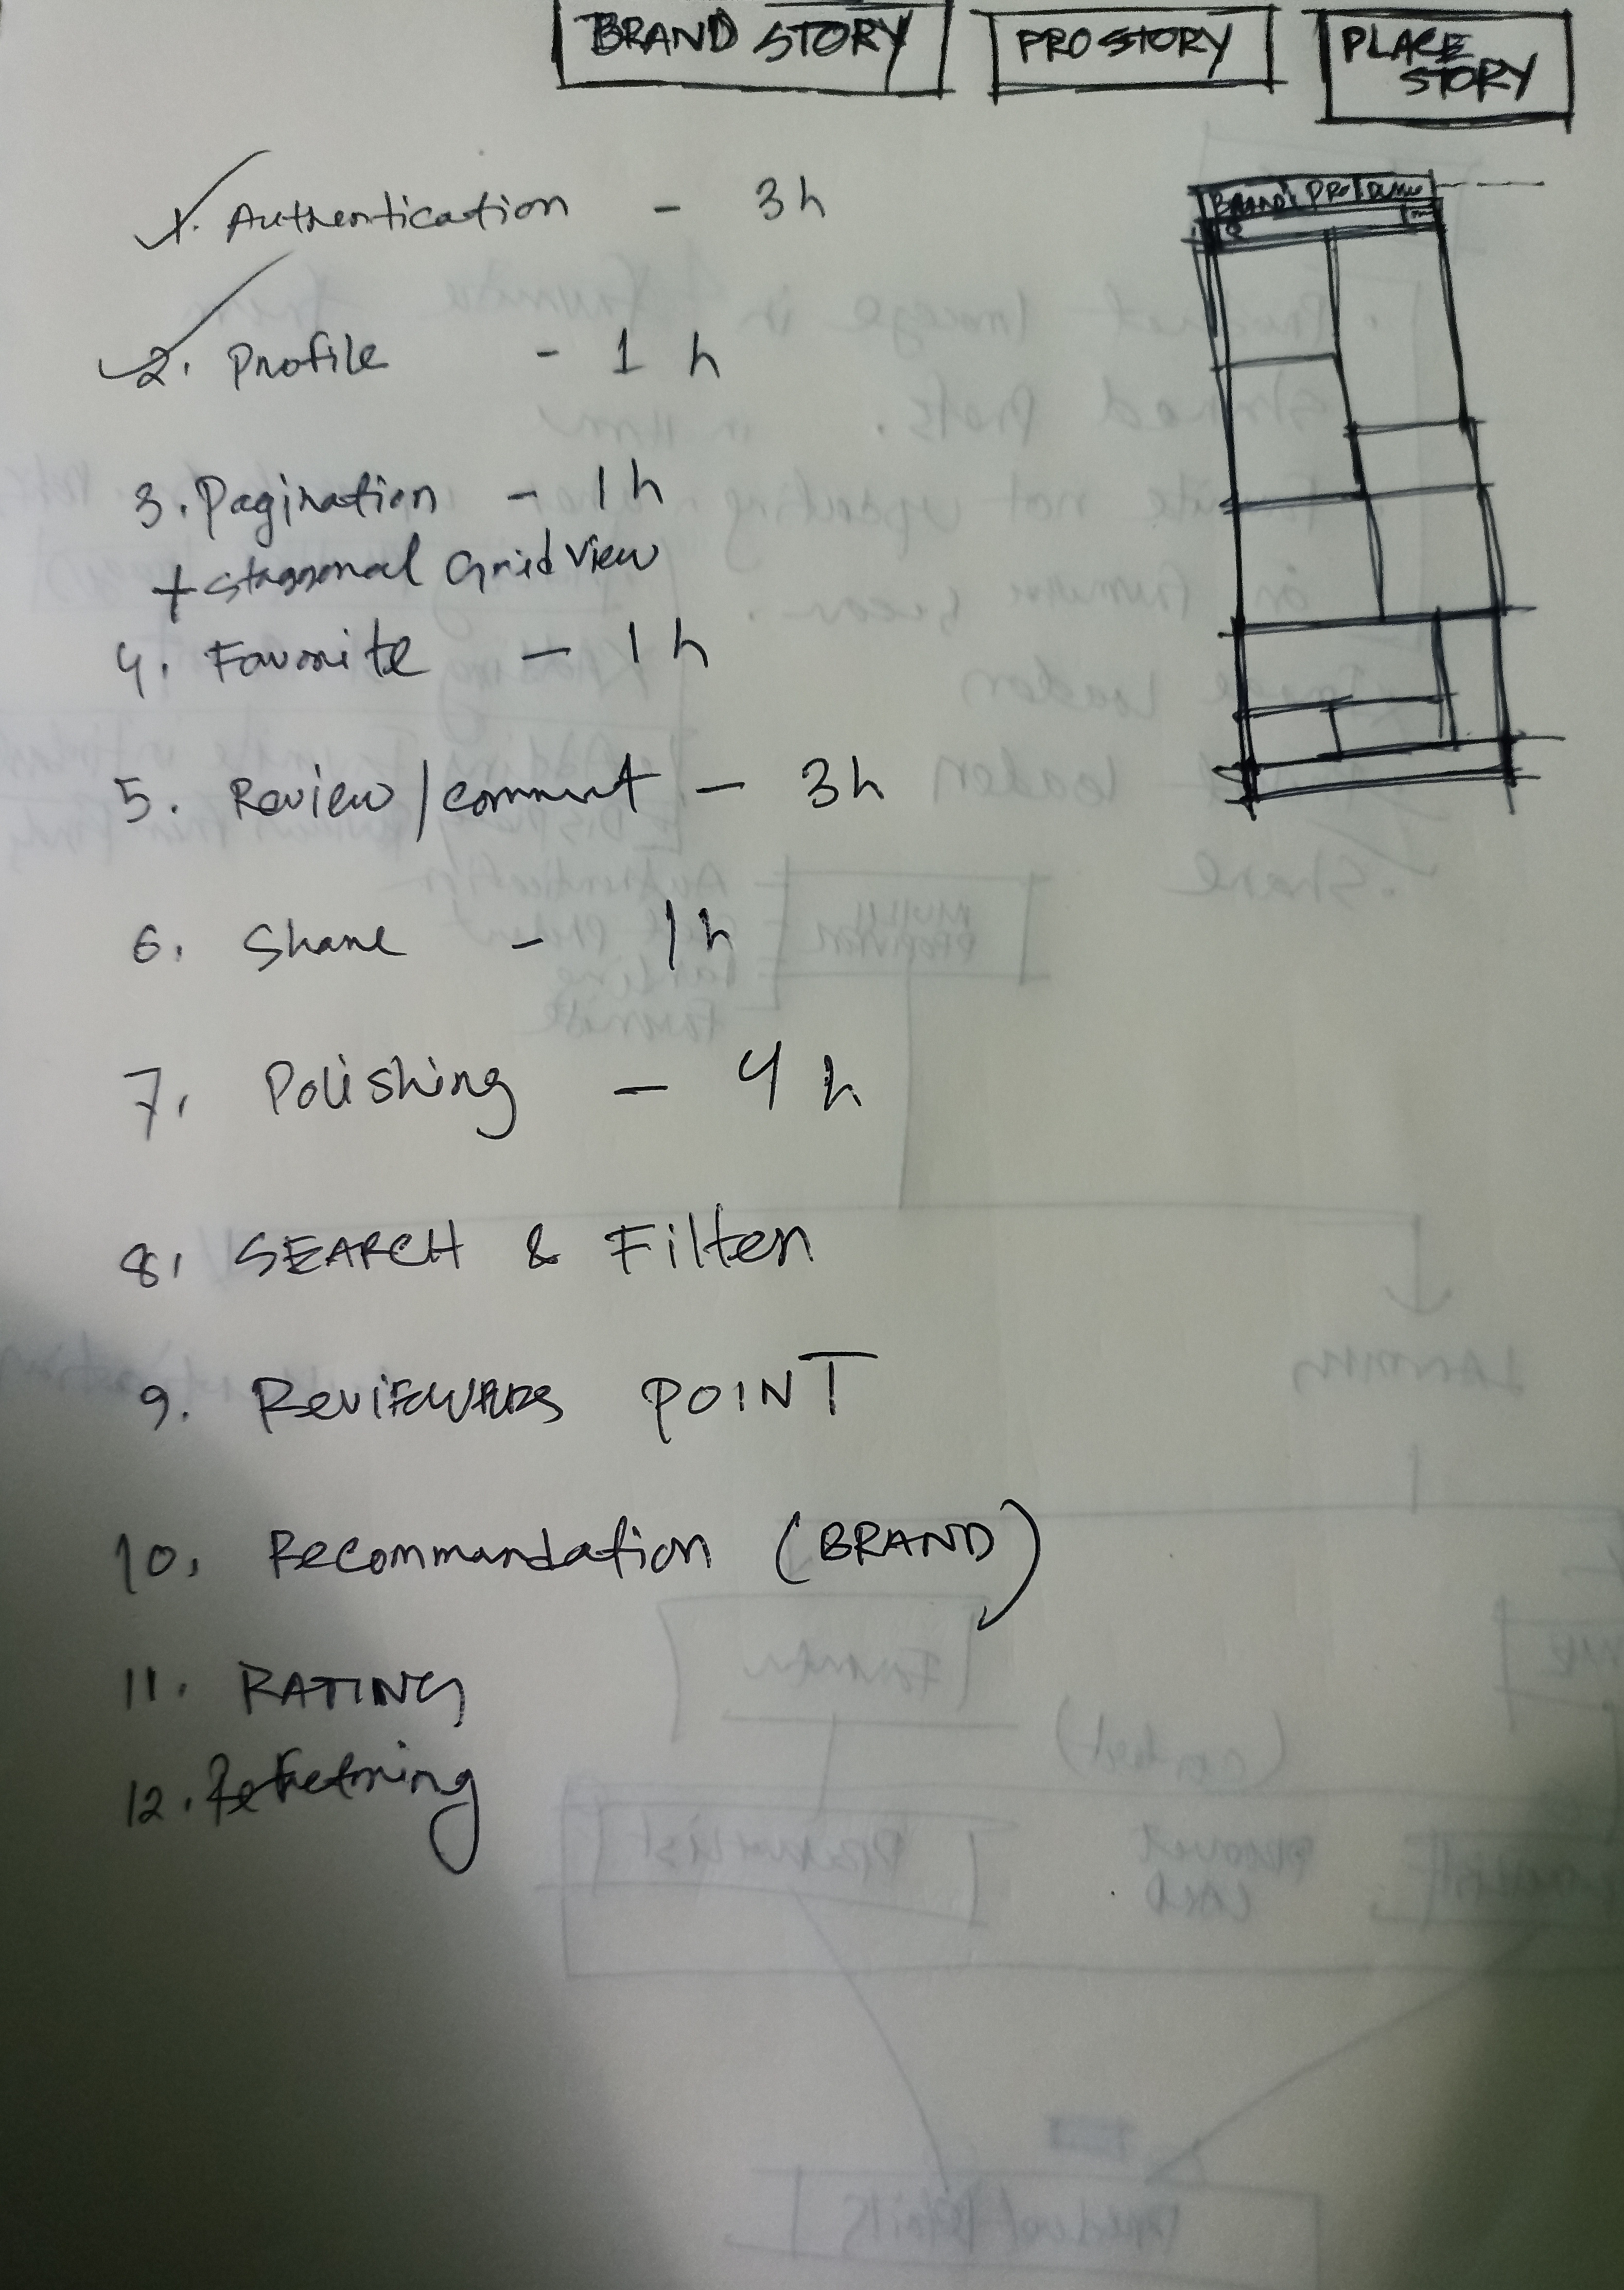 BRAND STORY
PRO STORY
PLACE
STORY
BRAND PRO
1. Authentication - 3h
2. Profile - 1 h
3. Pagination - 1h
+ Staggered Grid View
4. Favorite - 1h
5. Review/comment - 3h
6. Share - 1h
7. Polishing - 4 h
8. SEARCH & Filter
9. REVIEWERS POINT
10. Recommandation (BRAND)
11. RATING
12.